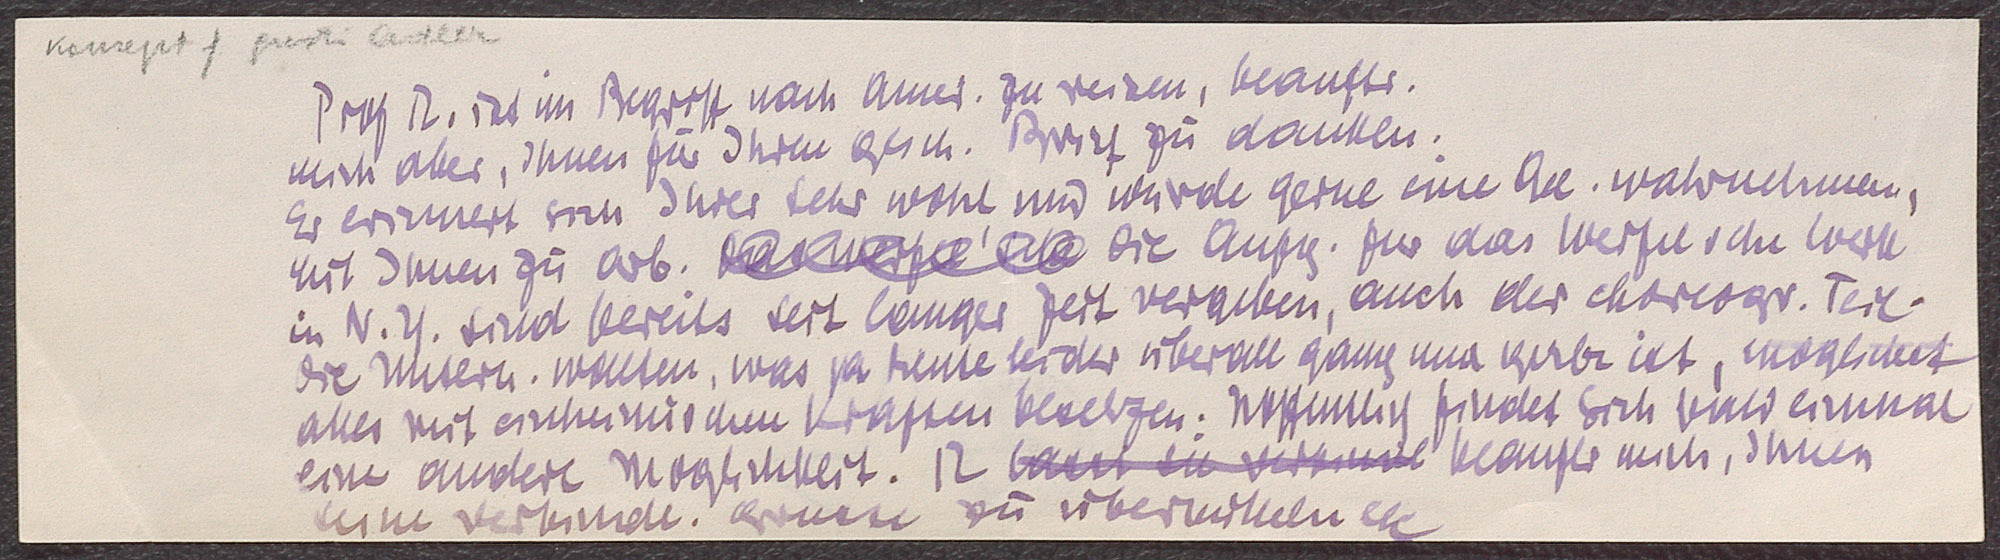 Konzept f
Prof R. ist im Begriff nach Amer. zu reisen, beauftr.
mich aber, Ihnen für Ihren gesch. Brief zu danken.
Er erinnert sich Ihrer sehr wohl und würde gerne eine Gel. wahrnehmen,
mit Ihnen zu arb. Die Aufg. für das Werfelsche Werk
in N.Y. sind bereits seit langer Zeit vergeben, auch der choreogr. Teil.
Die Untern. wollen, was ja heute leider überall gang und gäbe ist, möglichst
alles mit einheimischen Kräften besetzen. Hoffentlich findet sich bald einmal
eine andere Möglichkeit. R lässt Sie beauftr mich, Ihnen
seine verbindl. Grüsse zu übermitteln etc